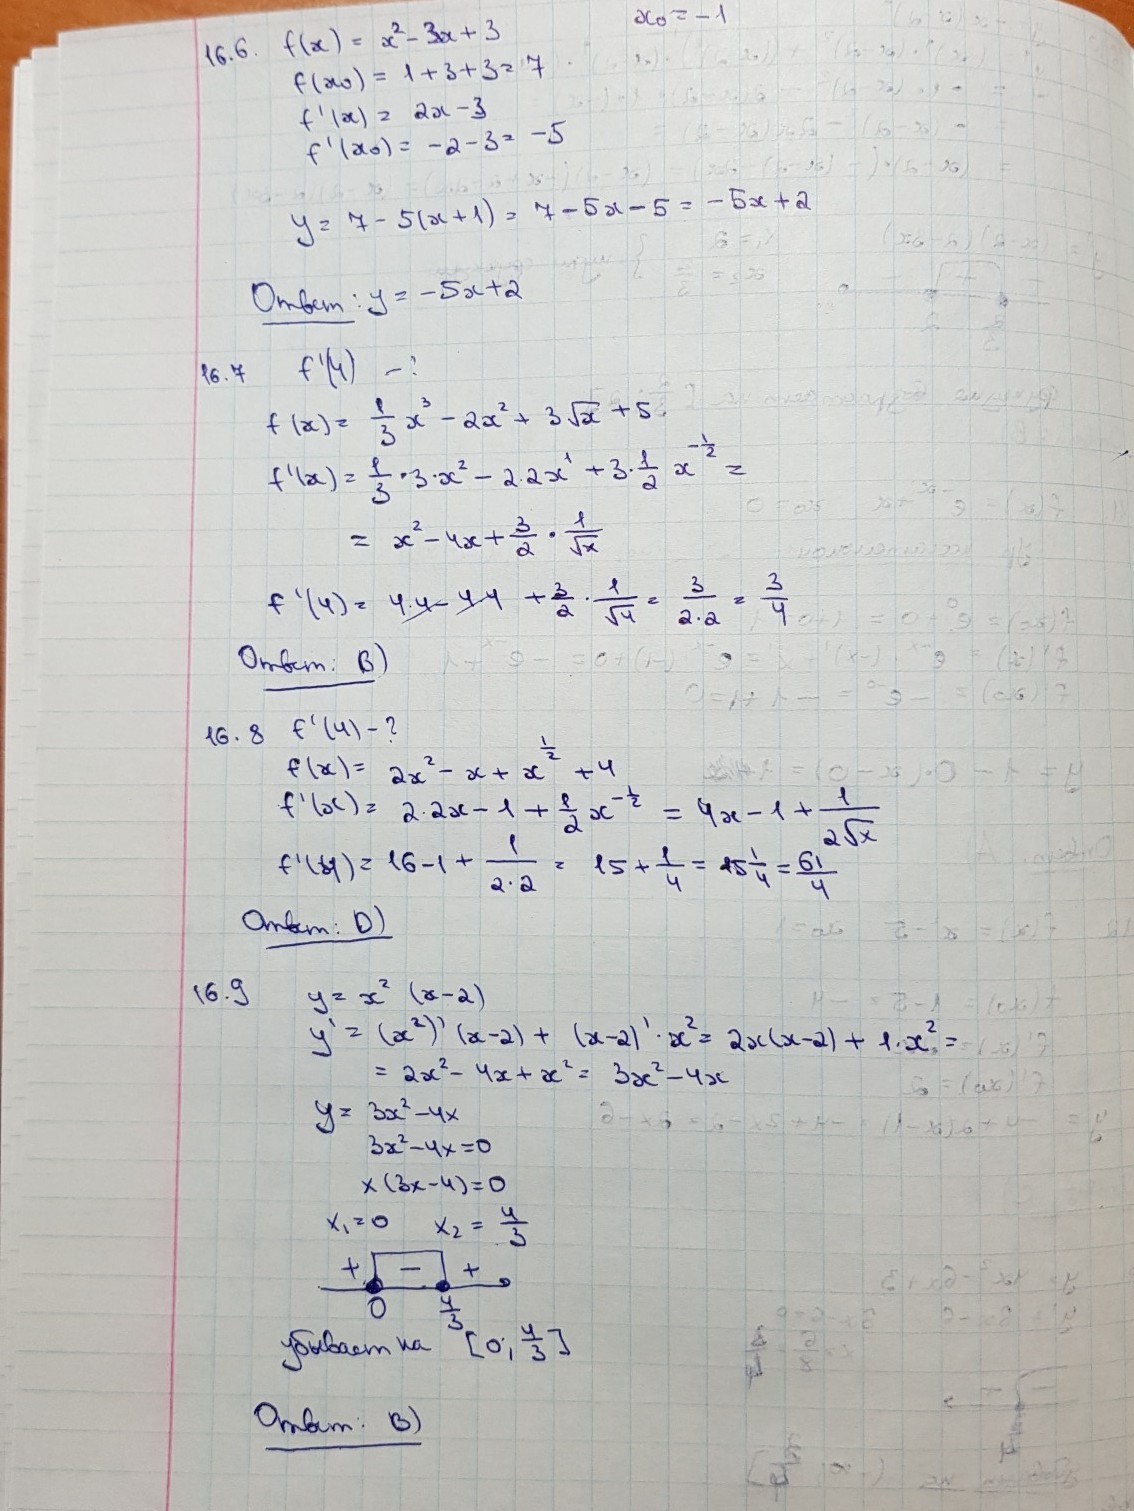 x₀ = -1
16.6. f(x) = x² - 3x + 3
f(x₀) = 1 + 3 + 3 = 7
f'(x) = 2x - 3
f'(x₀) = -2 - 3 = -5
y = 7 - 5(x+1) = 7 - 5x - 5 = -5x + 2
Ответ: y = -5x + 2
16.7 f'(4) - ?
f(x) = 1/3 x³ - 2x² + 3√x + 5
f'(x) = 1/3 · 3 · x² - 2·2x¹ + 3·1/2 x^(-1/2) =
= x² - 4x + 3/2 · 1/√x
f'(4) = 4·4 - 4·4 + 3/2 · 1/√4 = 3/(2·2) = 3/4
Ответ: B)
16.8 f'(4) - ?
f(x) = 2x² - x + x^(1/2) + 4
f'(x) = 2·2x - 1 + 1/2 x^(-1/2) = 4x - 1 + 1/(2√x)
f'(4) = 16 - 1 + 1/(2·2) = 15 + 1/4 = 15 1/4 = 61/4
Ответ: D)
16.9 y = x² (x-2)
y' = (x²)' (x-2) + (x-2)' · x² = 2x(x-2) + 1·x² =
= 2x² - 4x + x² = 3x² - 4x
y = 3x² - 4x
3x² - 4x = 0
x(3x-4) = 0
x₁ = 0 x₂ = 4/3
+ - +
0 4/3
убывает на [0; 4/3]
Ответ: B)